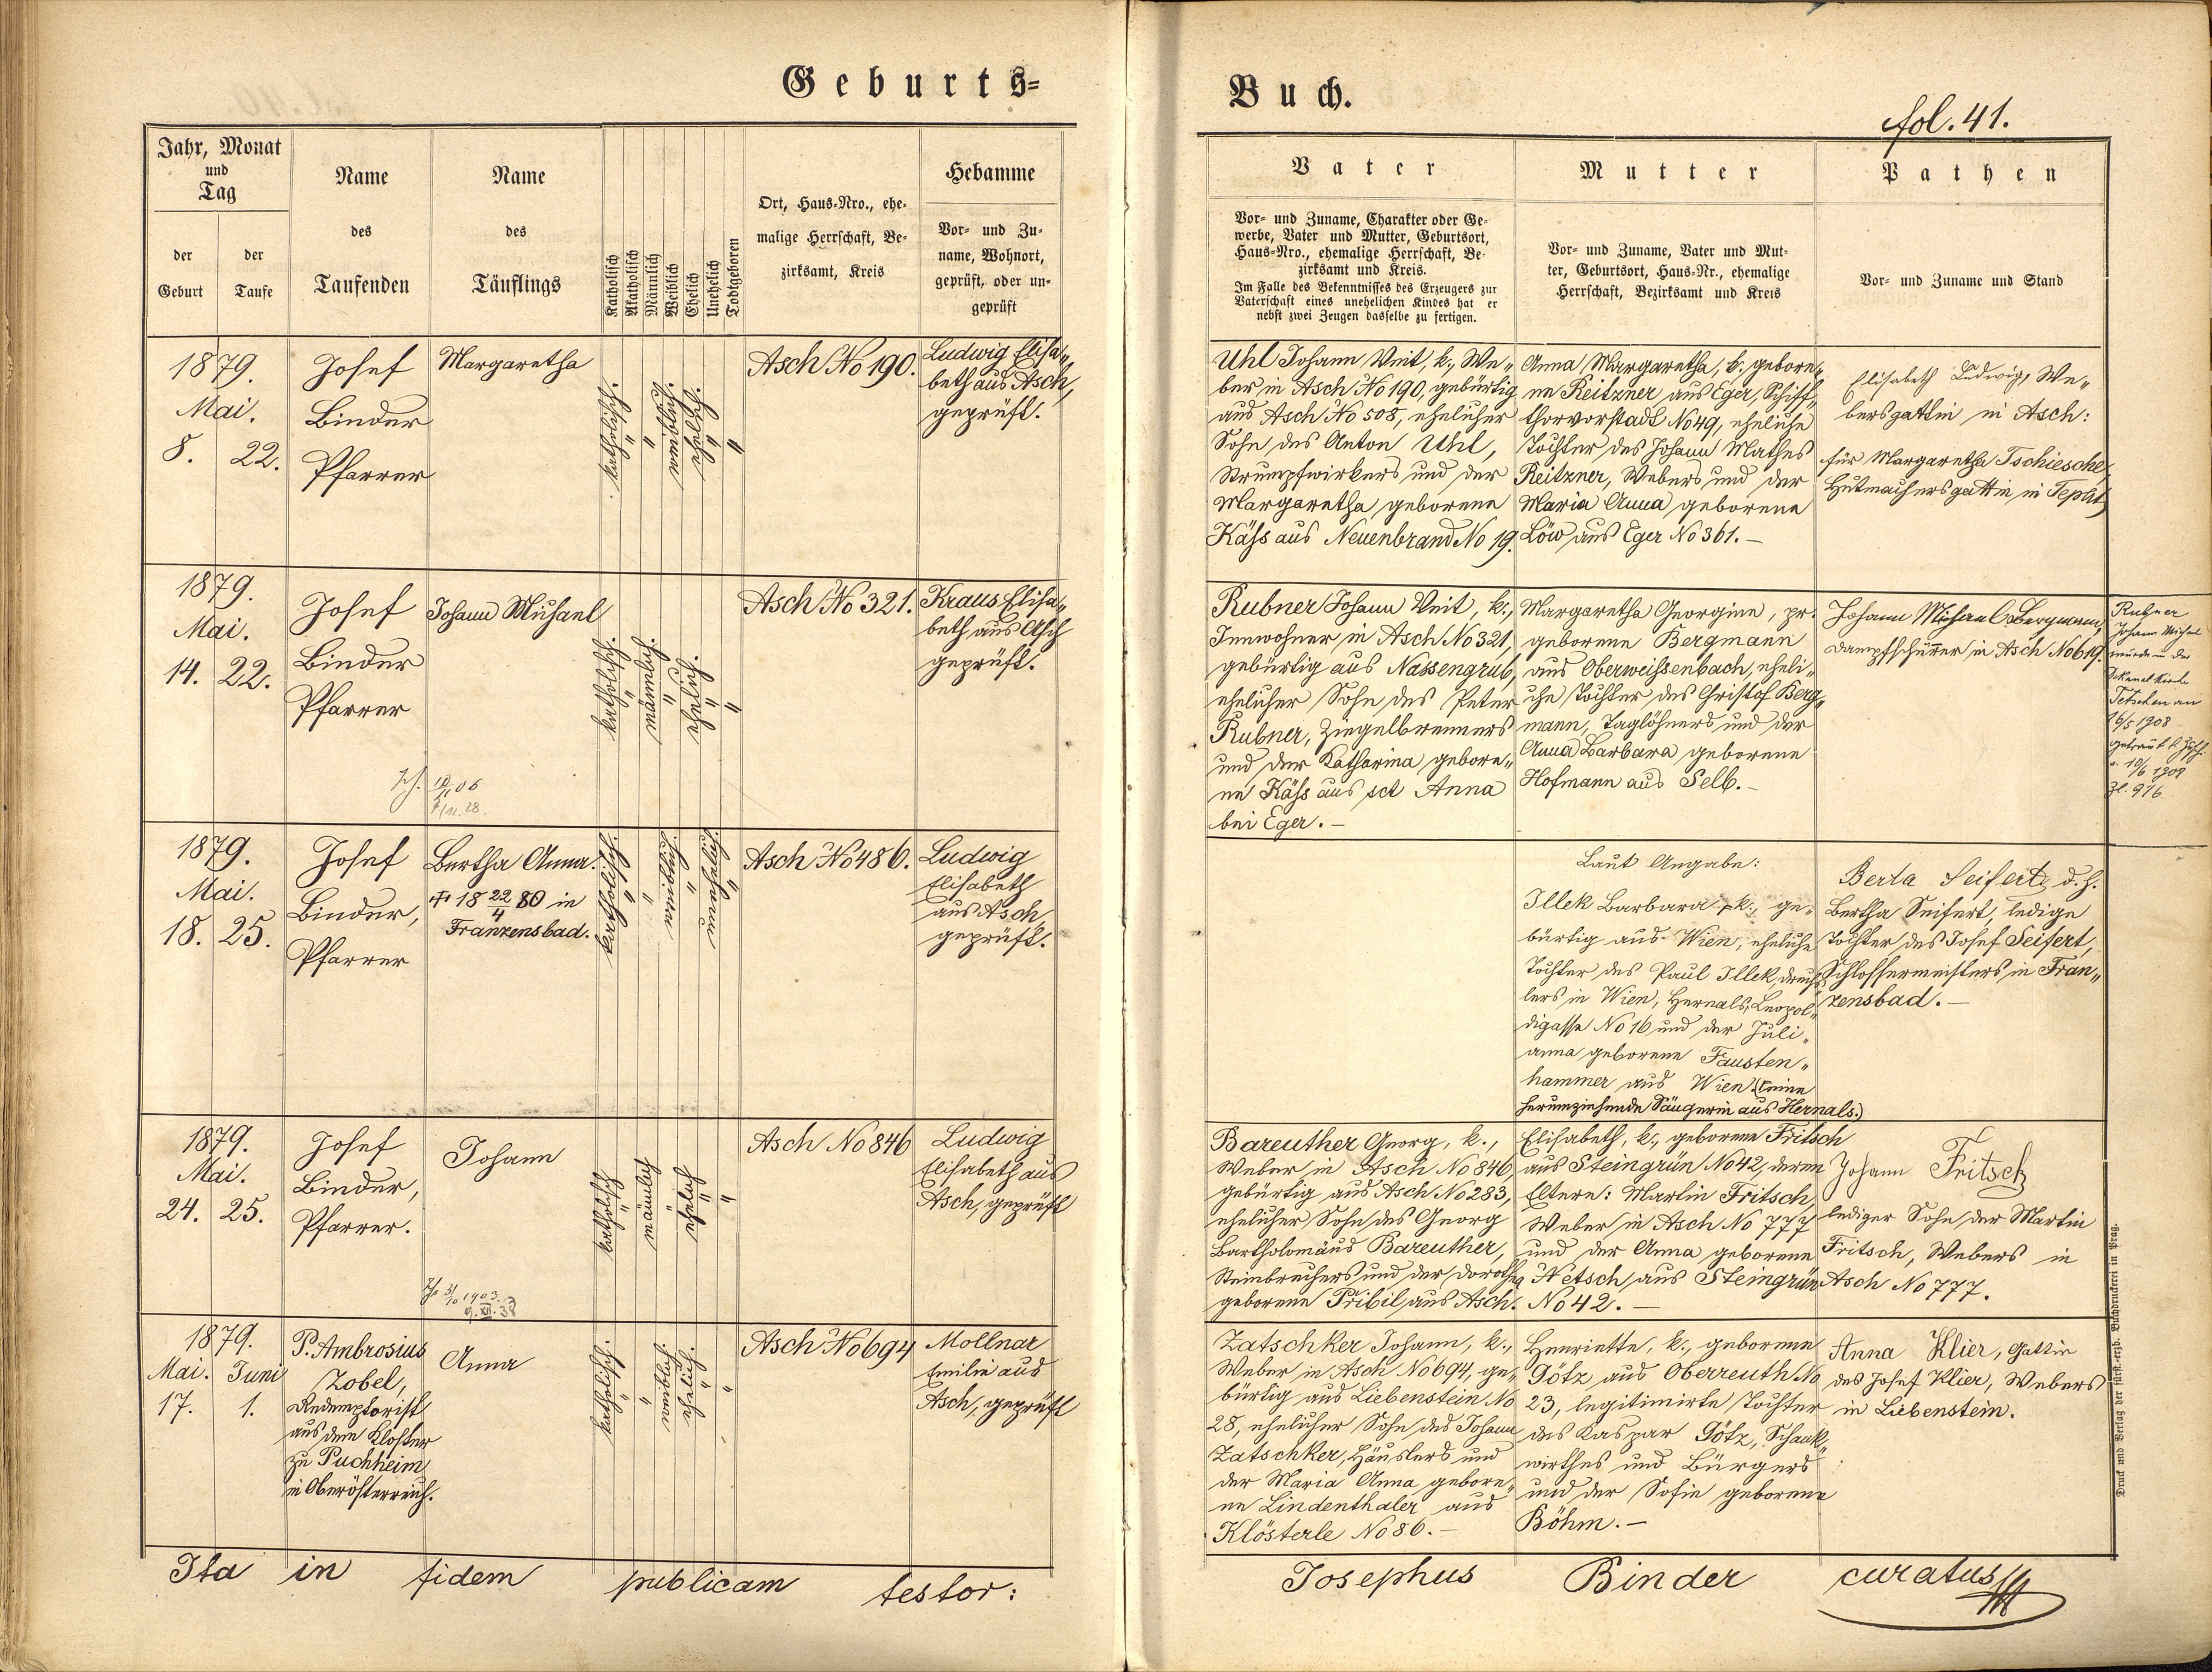 Geburts=
Jahr, Monat
und
Tag
der
Geburt
der
Taufe
Name
des
Taufenden
Name
des
Täuflings
Katholisch
Akatholisch
Männlich
Weiblich
Ehelich
Unehelich
Todtgeboren
Ort, Haus=Nro., ehe-
malige Herrschaft, Be-
zirksamt, Kreis
Hebamme
Vor= und Zu-
name, Wohnort,
geprüft, oder un-
geprüft
1879.
Mai.
8. 22.
Josef
Binder
Pfarrer
Margaretha
katholisch.
"
"
weiblich.
ehelich.
"
"
Asch No 190.
Ludwig Elisa„
beth aus Asch,
geprüft.
1879.
Mai.
14. 22.
Josef
Binder
Pfarrer
Johann Michael
katholisch.
"
männlich.
"
ehelich.
"
"
Asch No 321.
Kraus Elisa„
beth aus Asch
geprüft.
1879.
Mai.
18. 25.
Josef
Binder,
Pfarrer
Bertha Anna.
‡ 18 22/4 80 in
Franzensbad.
katholisch.
"
"
weiblich.
"
unehelich.
"
Asch No 486.
Ludwig
Elisabeth
aus Asch,
geprüft.
1879.
Mai.
24. 25.
Josef
Binder,
Pfarrer.
Johann
katholisch
"
männlich
"
ehelich
"
"
Asch No 846
Ludwig
Elisabeth aus
Asch, geprüft
1879.
Mai. Juni
17. 1.
P. Ambrosius
Zobel,
Redemptorist
aus dem Kloster
zu Puchheim
in Oberösterreich.
Anna
katholisch.
"
"
weiblich
ehelich.
"
Asch No 694
Mollnar
Emilie aus
Asch, geprüft
Ita in fidem publicam testor:
Buch.
fol. 41.
Vater
Vor= und Zuname, Charakter oder Ge-
werbe, Vater und Mutter, Geburtsort,
Haus=Nro., ehemalige Herrschaft, Be-
zirksamt und Kreis.
Im Falle des Bekenntnisses des Erzeugers zur
Vaterschaft eines unehelichen Kindes hat er
nebst zwei Zeugen dasselbe zu fertigen.
Mutter
Vor= und Zuname, Vater und Mut-
ter, Geburtsort, Haus=Nr., ehemalige
Herrschaft, Bezirksamt und Kreis
Pathen
Vor= und Zuname und Stand
Uhl Johann Veit, k., We„
ber in Asch No 190, gebürtig
aus Asch No 508, ehelicher
Sohn des Anton Uhl,
Strumpfwirkers und der
Margaretha geborene
Käss aus Neuenbrand No 19.
Anna Margaretha, k., gebore„
ne Reitzner aus Eger, Schiff„
thorvorstadt No 49, eheliche
Tochter des Johann Mathes
Reitzner, Webers und der
Maria Anna geborene
Löw aus Eger No 361.—
Elisabeth Ludwig, We„
bersgattin in Asch:
für Margaretha Tschiesche,
Hutmachersgattin in Teplitz
Rubner Johann Veit, k.,
Innwohner in Asch No 321,
gebürtig aus Nassengrub,
ehelicher Sohn des Peter
Rubner, Ziegelbrenners
und der Katharina gebore„
ne Käss aus sct Anna
bei Eger.—
Margaretha Georgine, pr.
geborene Bergmann
aus Oberweissenbach, eheli„
che Tochter des Christof Berg„
mann, Taglöhners und der
Anna Barbara geborene
Hofmann aus Selb.—
Johann Michael Bergmann,
Dampfschürer in Asch No 619.
Rubner
Johann Michael
wurde in der
Dekanalkirche
Tetschen am
16/5 1908
getraut
10/6 1908
Zl. 976
Laut Angabe:
Illek Barbara, k., ge„
bürtig aus Wien, eheliche
Tochter des Paul Illek, Drechs„
lers in Wien, Hernals, Leopol„
digasse No 16 und der Juli„
anna geborene Fausten„
hammer aus Wien. (eine
herumziehende Sängerin aus Hernals.)
Berta Seifert, d. h.
Bertha Seifert, ledige
Tochter des Josef Seifert,
Schlossermeisters in Fran„
zensbad.—
Bareuther Georg, k.,
Weber in Asch No 846,
gebürtig aus Asch No 283,
ehelicher Sohn des Georg
Bartholomäus Bareuther,
Steinbrechers und der Dorothea
geborene Přibil aus Asch.
Elisabeth, k., geborene Fritsch
aus Steingrün No 42, deren
Eltern: Martin Fritsch,
Weber in Asch No 777
und der Anna geborene
Netsch aus Steingrün
No 42.—
Johann Fritsch
lediger Sohn der Martin
Fritsch, Webers in
Asch No 777.
Zatschker Johann, k.,
Weber in Asch No 694, ge„
bürtig aus Liebenstein No
28, ehelicher Sohn des Johann
Zatschker, Häuslers und
der Maria Anna gebore„
ne Lindenthaler aus
Klösterle No 86.—
Henriette, k., geborene
Götz aus Oberreuth No
23, legitimirte Tochter
des Kaspar Götz, Schank„
wirthes und Bürgers
und der Sofie geborene
Böhm.—
Anna Klier, Gattin
des Josef Klier, Webers
in Liebenstein.
Josephus Binder curatus
Druck und Verlag der fürst.=erzb. Buchdruckerei in Prag.